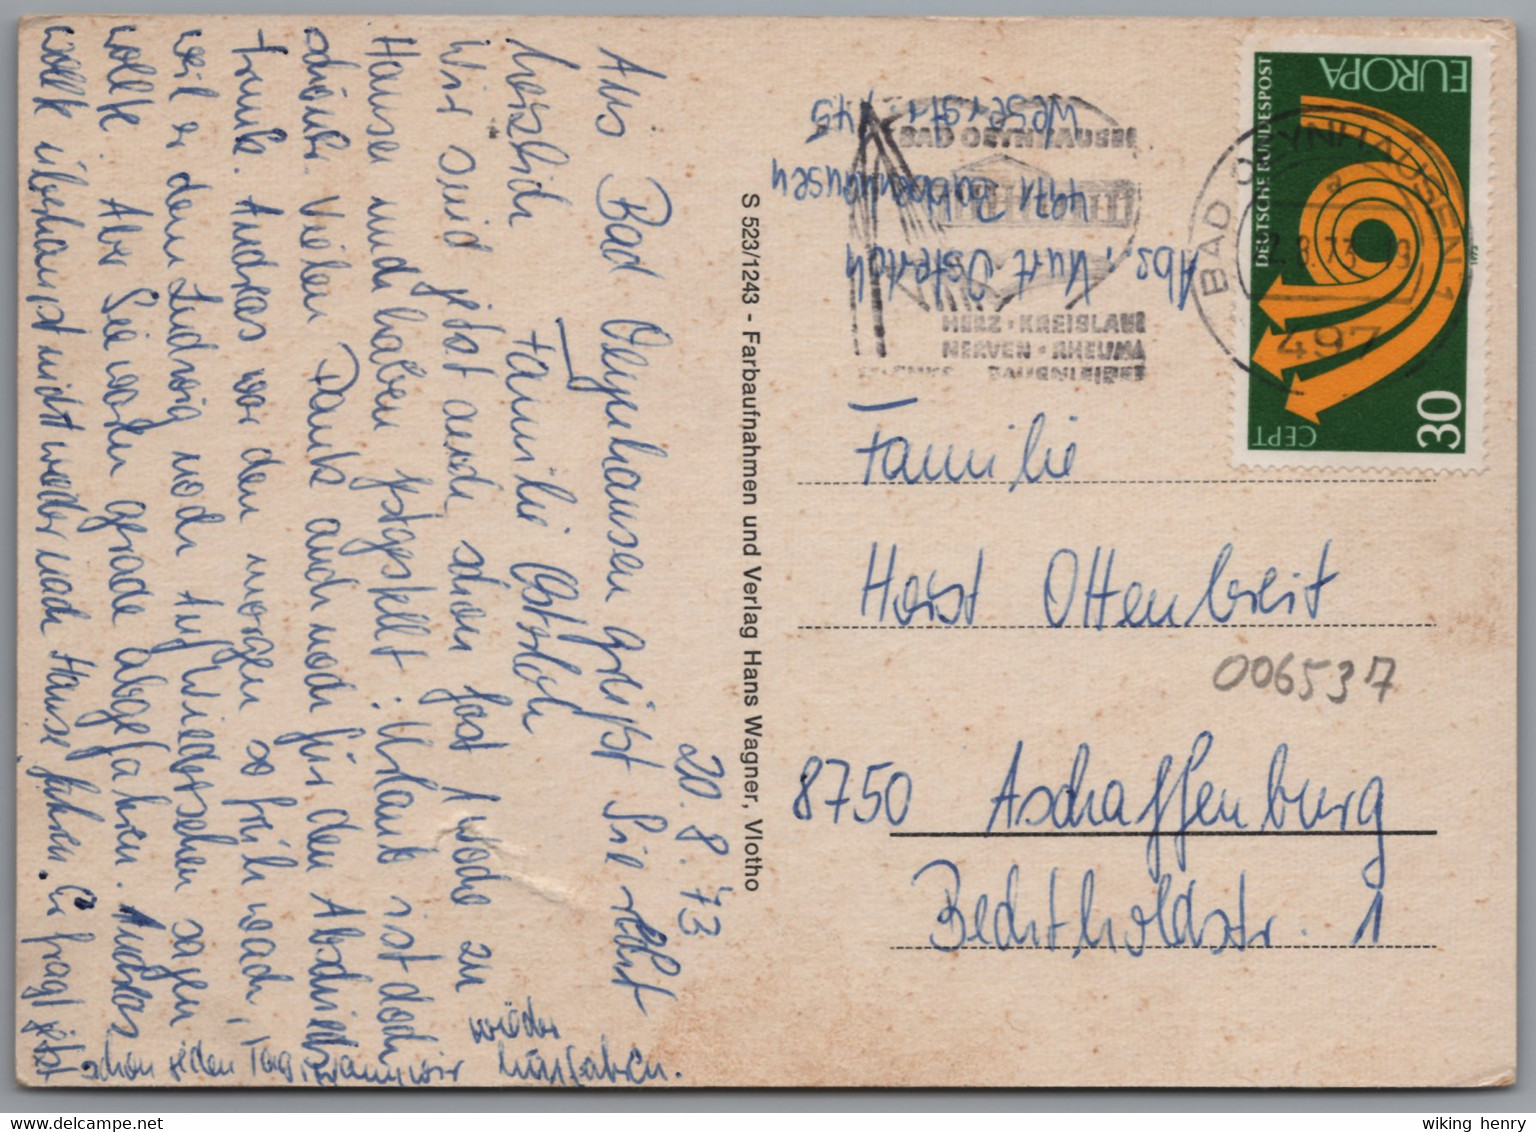 20.8.73
Aus Bad Oeynhausen grüßt Sie recht
herzlich Familie Ostsloh
Wir sind jetzt auch schon fast 1 Woche zu
Hause und haben festgestellt: Urlaub ist doch
schöner. Vielen Dank auch noch für den Abschied
trunk. Andreas war den morgen so früh wach,
weil er dem Ludwig noch Auf Wiedersehen sagen
wollte. Aber Sie waren gerade abgefahren. Andreas
wollte überhaupt nicht wieder nach Hause fahren. Er fragt jetzt
schon jeden Tag, wann wir wieder hinfahren.
S 523/1243 - Farbaufnahmen und Verlag Hans Wagner, Vlotho
Abs.: Kurt
4971
Weserstr. 45
BAD OEYNHAUSEN
HERZ · KREISLAUF
NERVEN · RHEUMA
FRAUENLEIDEN
BAD OEYNHAUSEN 1
a
8.73
497
EUROPA
DEUTSCHE BUNDESPOST
CEPT
30
1973
Familie
Horst Ottenbreit
006537
8750 Aschaffenburg
Bechtholdstr. 1
wiking henry